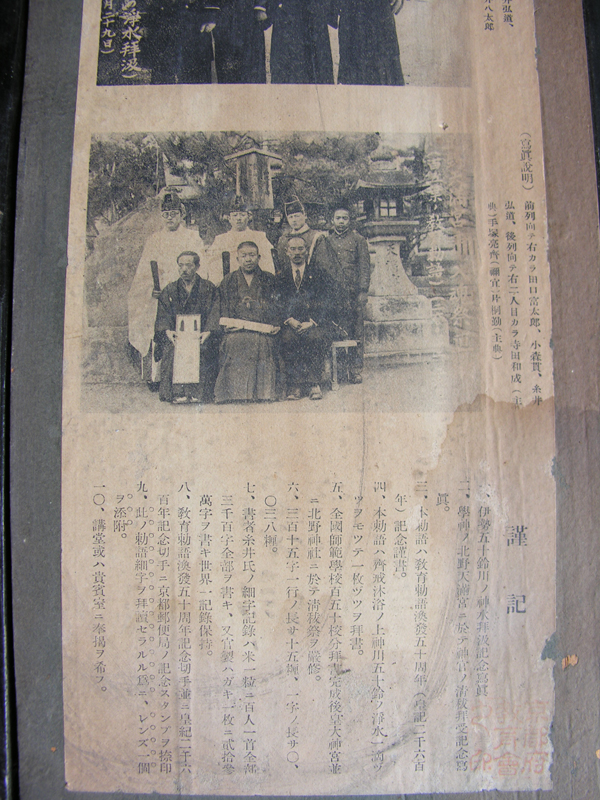 井弘道、
井八太郎
淨水拜汲
月二十九日)
(寫眞說明)
前列向テ右カラ田口富太郎、小森貫、糸井
弘道、後列向テ右二人目カラ寺田和成(主
典)手塚亮齊(禰宜)片桐勤(主典)
謹記
一、伊勢五十鈴川ノ神水拜汲記念寫眞
二、學神ノ北野天滿宮ニ於テ神官ノ淸祓拜受記念寫
眞。
三、本勅語ハ敎育勅語渙發五十周年(皇記二千六百
年)記念謹書。
四、本勅語ハ齊戒沐浴ノ上神川五十鈴ノ淨水一滴ヅ
ツヲモツテ一枚ヅツヲ拜書。
五、全國師範學校百五十校分拜書完成後皇大神宮並
ニ北野神社ニ於テ淸祓祭ヲ嚴修。
六、三百十五字一行ノ長サ十五糎、一字ノ長サ〇、
〇三八糎。
七、書者糸井氏ノ細字記錄ハ米一粒ニ百人一首全部
三千百字全部ヲ書キ、又官製ハガキ一枚ニ貳拾參
萬字ヲ書キ世界一記錄保持。
八、敎育勅語渙發五十周年記念切手並ニ皇紀二千六
百年記念切手ニ京都郵便局ノ記念スタンプヲ捺印
九、此ノ勅語細字ヲ拜讀セラルル爲ニ、レンズ一個
ヲ添附。
一〇、講堂或ハ貴賓室ニ奉揭ヲ希フ。